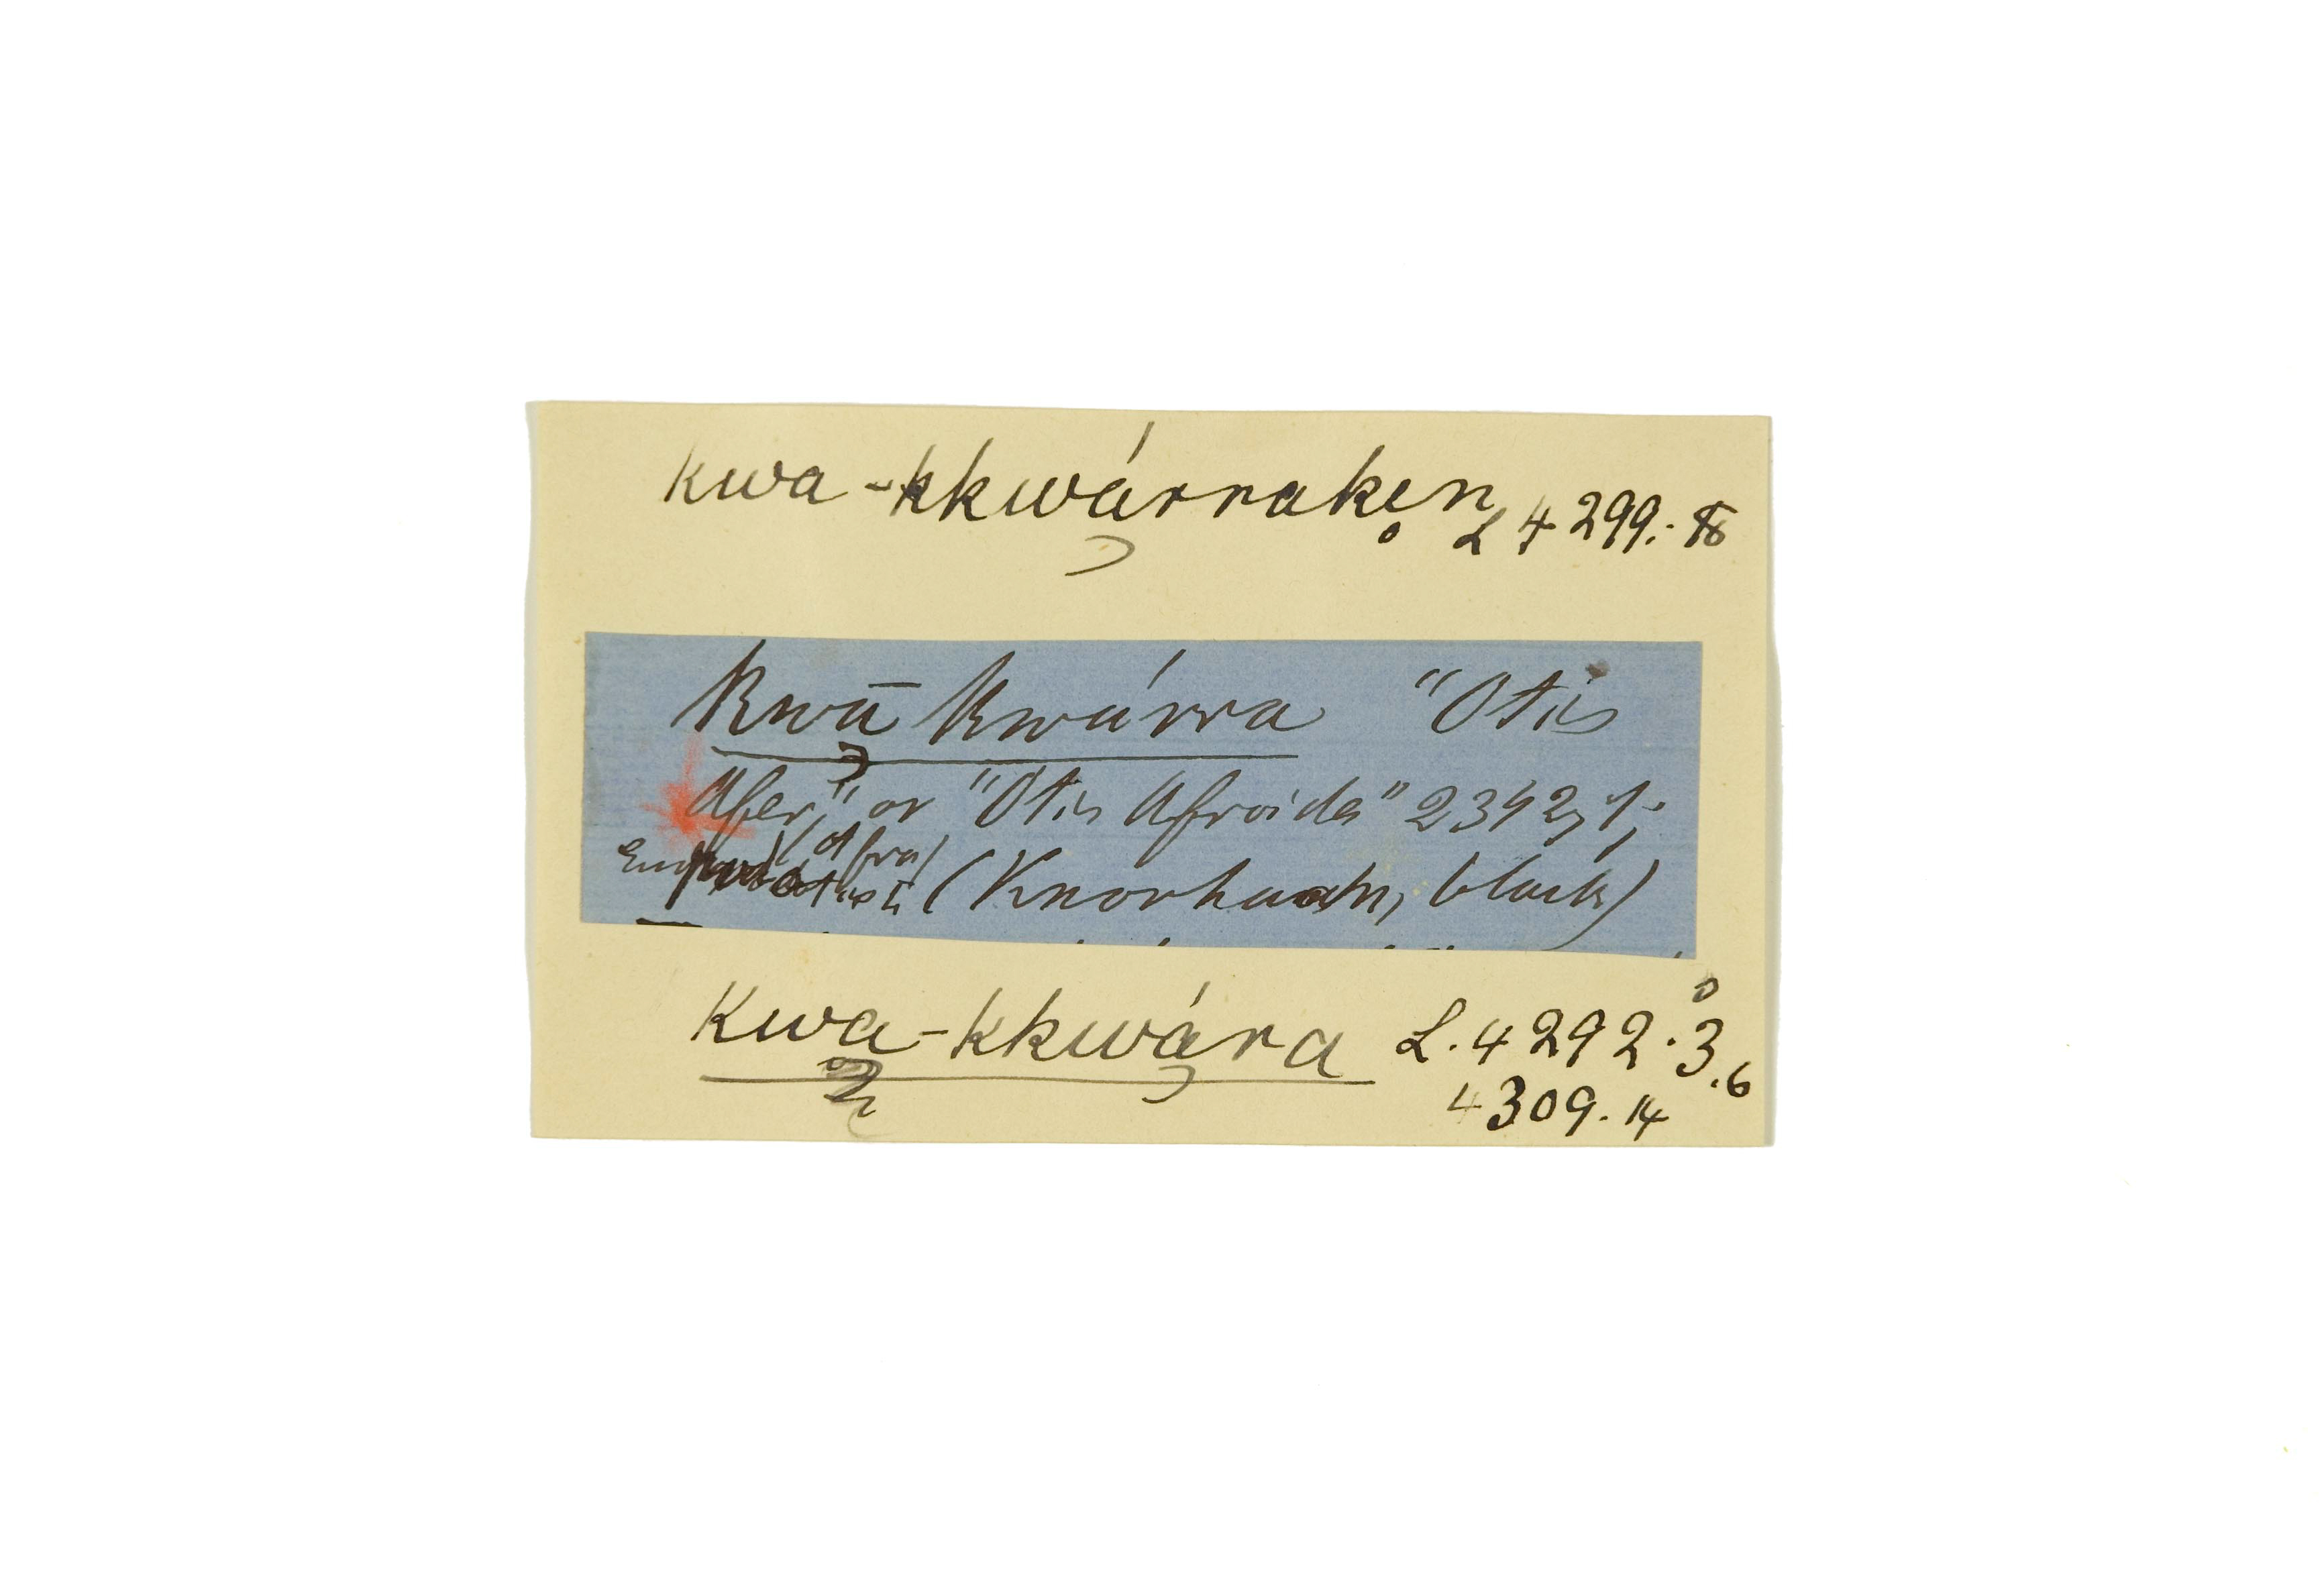 kwa-kkwárraken L 4299.-
Kwā kwárra "Otis
Afer," or "Otis Afroides" 2342, 1;
(Afra)
(Knorhaan, black)
Kwa-kkwára L.4292.3.6
4309.14